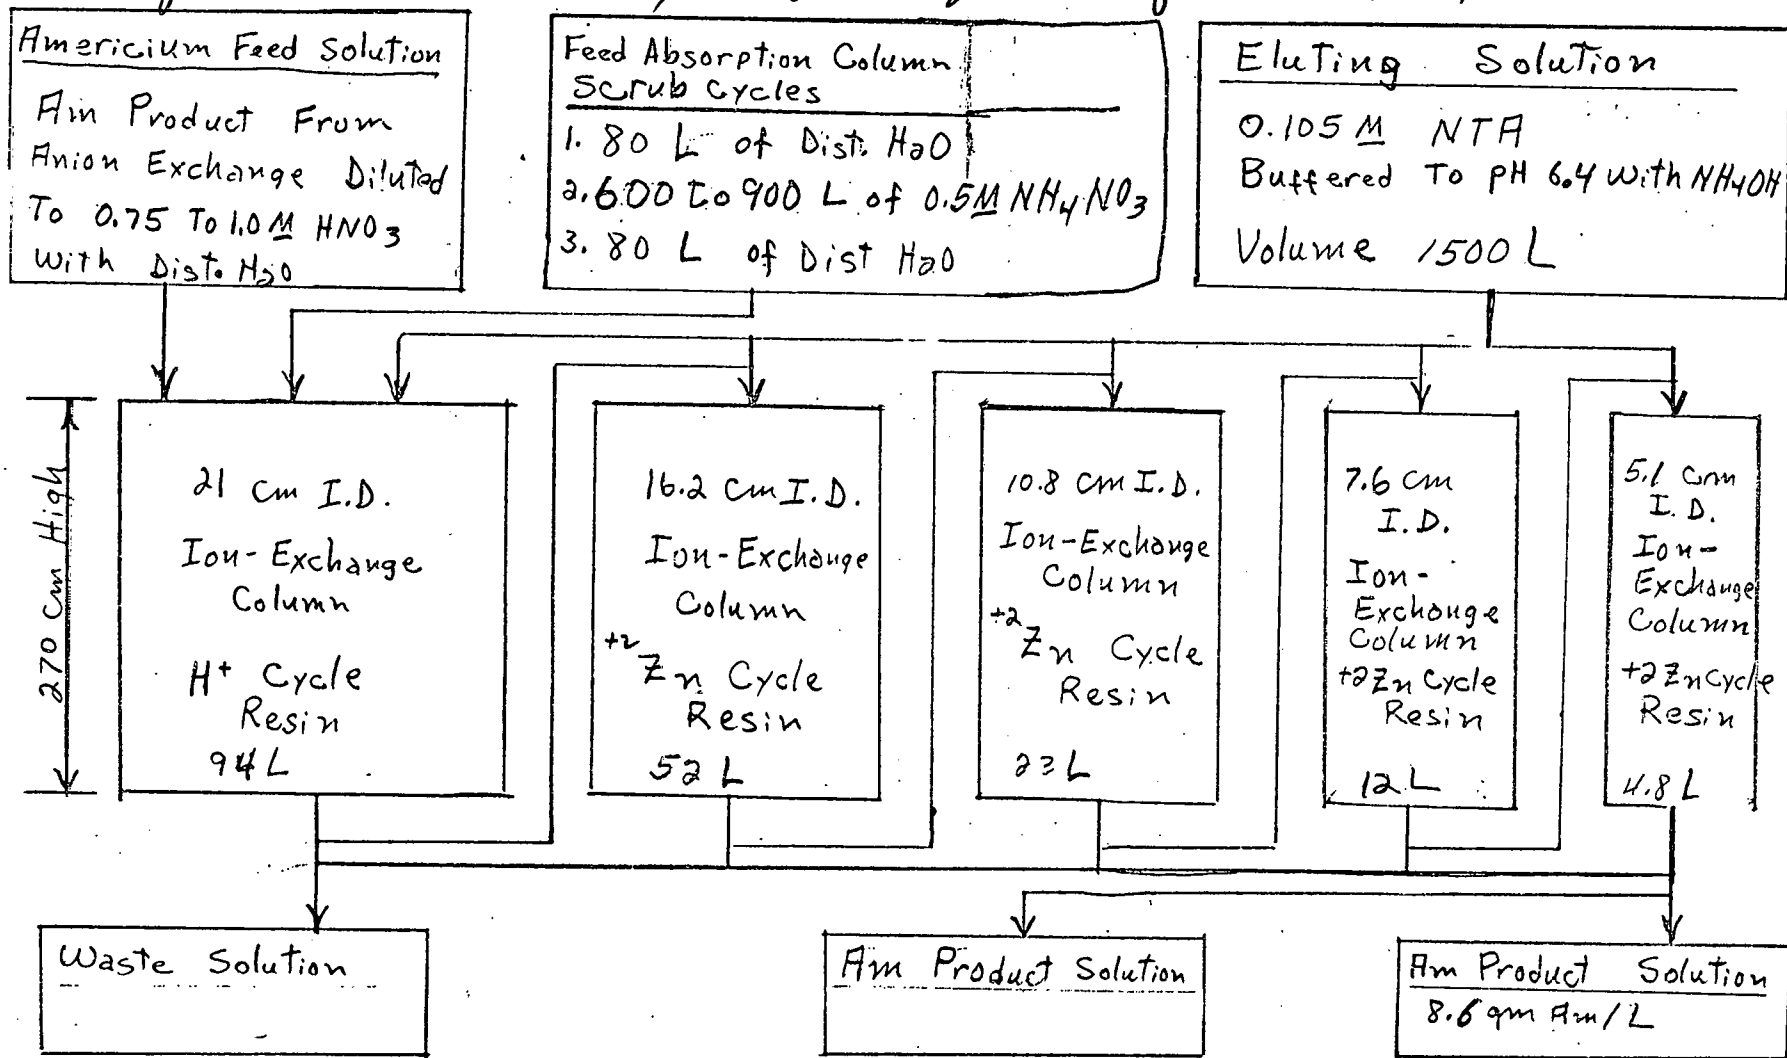 Americium Feed Solution
Am Product From
Anion Exchange Diluted
To 0.75 To 1.0 M HNO3
with Dist. H2O
Feed Absorption Column
Scrub Cycles
1. 80 L of Dist. H2O
2. 600 to 900 L of 0.5 M NH4NO3
3. 80 L of Dist H2O
Eluting Solution
0.105 M NTA
Buffered To pH 6.4 with NH4OH
Volume 1500 L
270 cm High
21 cm I.D.
Ion-Exchange
Column
H+ Cycle
Resin
94 L
16.2 cm I.D.
Ion-Exchange
Column
+2 Zn Cycle
Resin
52 L
10.8 cm I.D.
Ion-Exchange
Column
+2 Zn Cycle
Resin
23 L
7.6 cm
I.D.
Ion-
Exchange
Column
+2 Zn Cycle
Resin
12 L
5.1 cm
I.D.
Ion-
Exchange
Column
+2 Zn Cycle
Resin
4.8 L
Waste Solution
Am Product Solution
Am Product Solution
8.6 gm Am/L